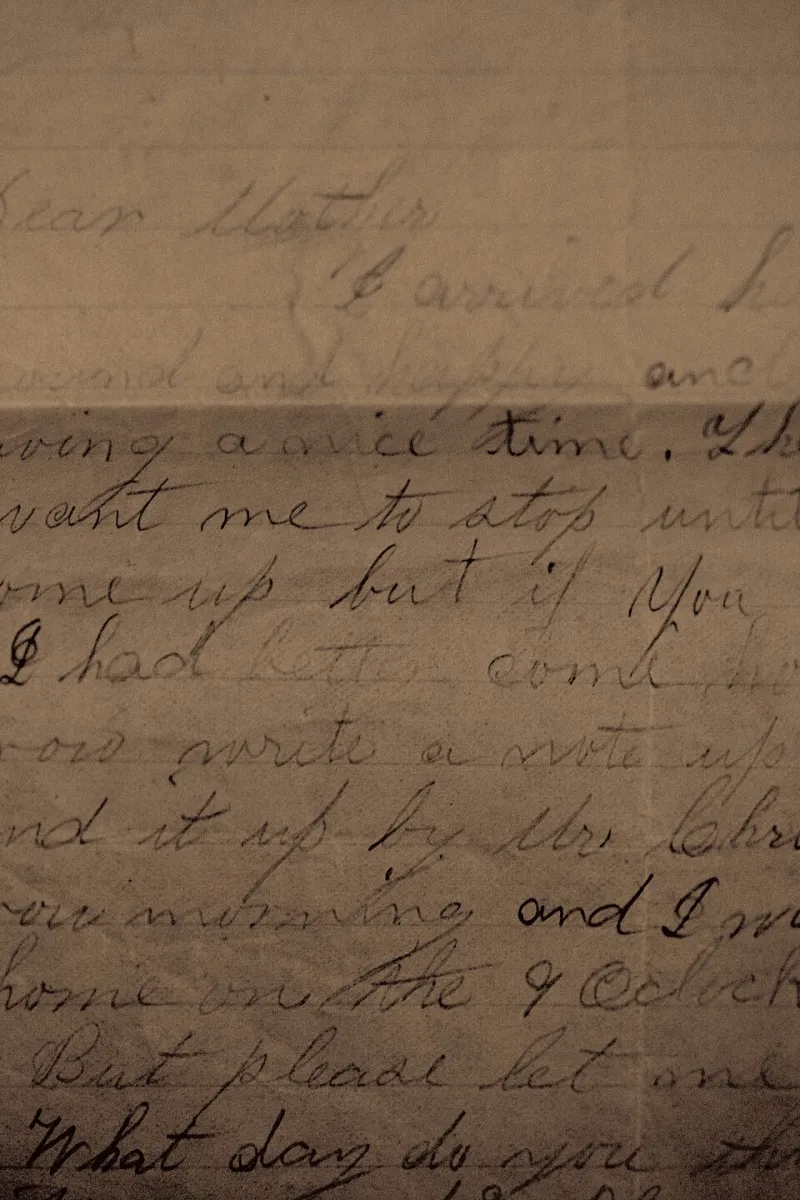 Dear Mother
I arrived h
ound and happy and
aving a nice time. The
want me to stop until
ome up but if you
I had better come ho
row write a note up
nd it up by Mr. Chri
row morning and I wi
home on the 9 Oclock
But please let me
What day do you thi